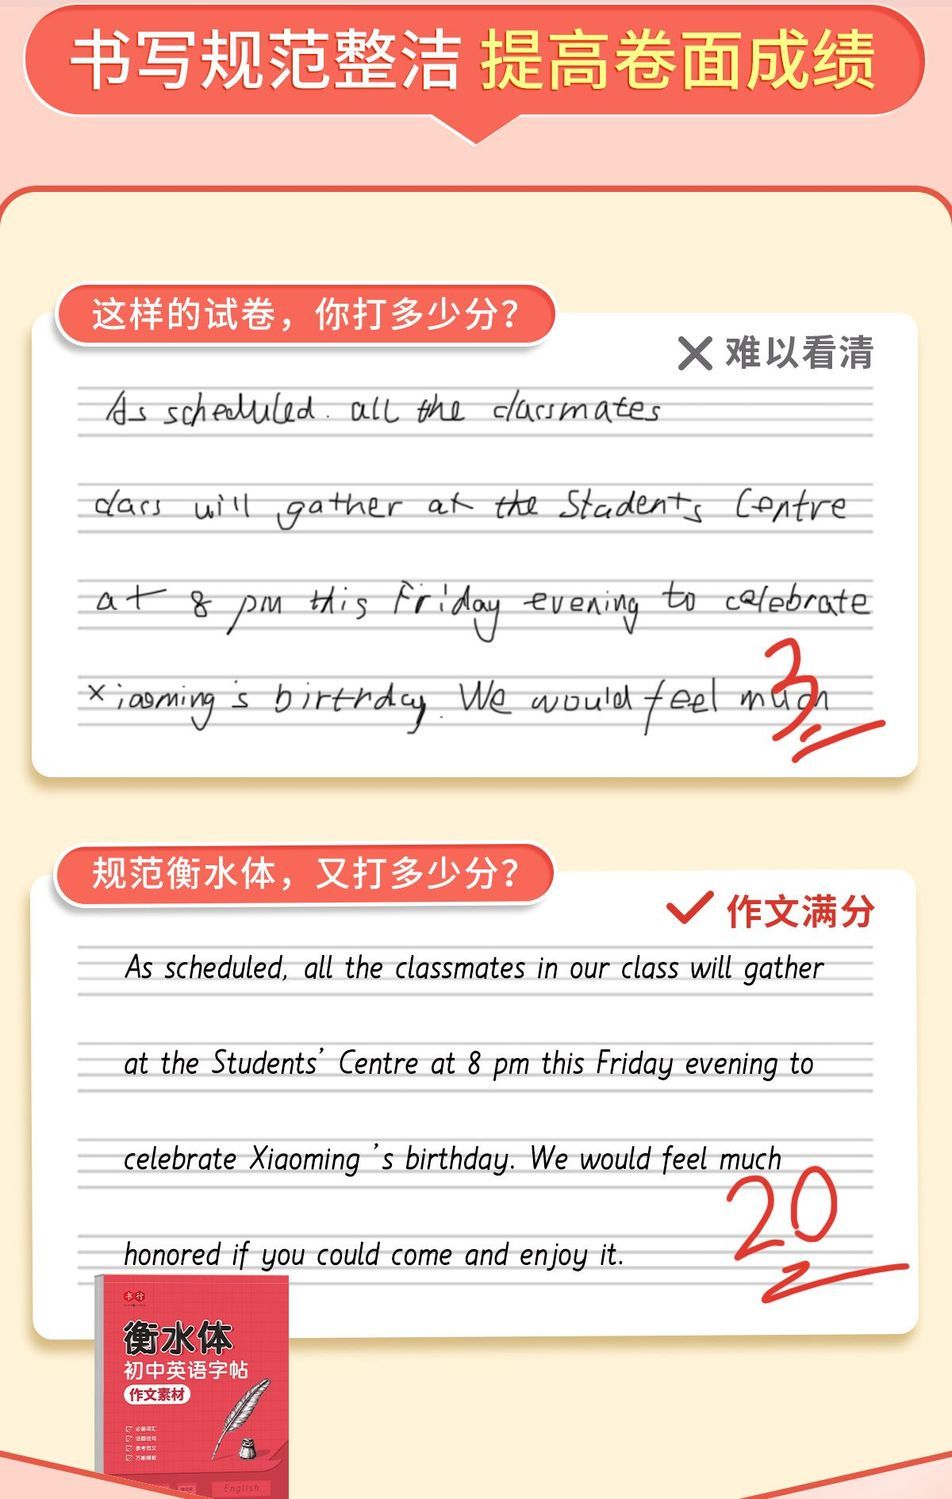 书写规范整洁 提高卷面成绩
这样的试卷，你打多少分？
难以看清
As scheduled. all the classmates
class will gather at the Students Centre
at 8 pm this Friday evening to celebrate
Xiaoming's birthday. We would feel much
3
规范衡水体，又打多少分？
作文满分
As scheduled, all the classmates in our class will gather
at the Students’ Centre at 8 pm this Friday evening to
celebrate Xiaoming ’s birthday. We would feel much
20
honored if you could come and enjoy it.
书行
衡水体
初中英语字帖
作文素材
必备词汇
话题佳句
参考范文
万能模板
English